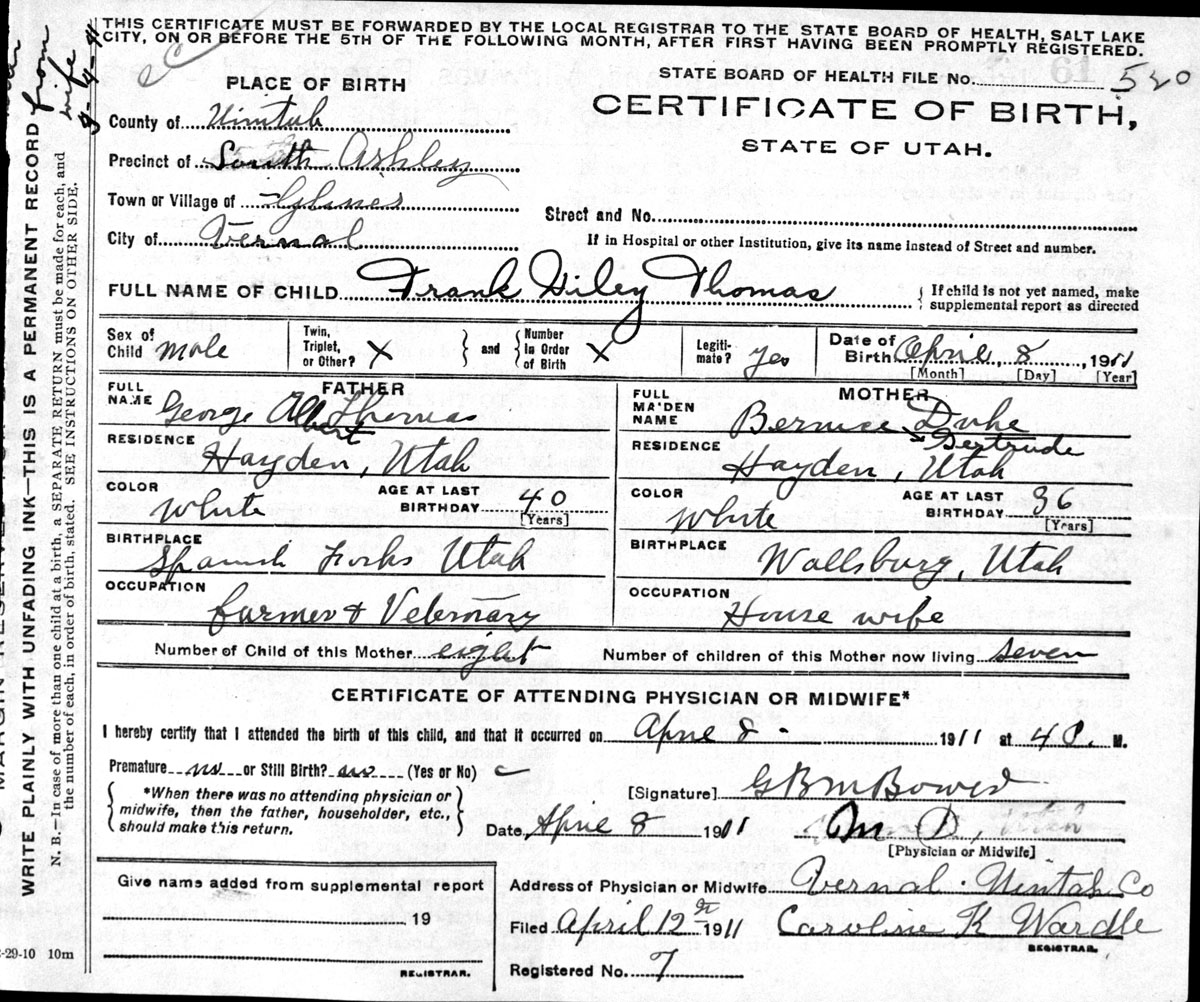 THIS CERTIFICATE MUST BE FORWARDED BY THE LOCAL REGISTRAR TO THE STATE BOARD OF HEALTH, SALT LAKE
CITY, ON OR BEFORE THE 5TH OF THE FOLLOWING MONTH, AFTER FIRST HAVING BEEN PROMPTLY REGISTERED.
STATE BOARD OF HEALTH FILE No. 520
PLACE OF BIRTH
CERTIFICATE OF BIRTH,
STATE OF UTAH.
County of Uintah
Precinct of South Ashley
Town or Village of
City of Vernal
Street and No.
If in Hospital or other Institution, give its name instead of Street and number.
FULL NAME OF CHILD Frank Wiley Thomas
{ If child is not yet named, make
supplemental report as directed
Sex of Child male
Twin, Triplet, or Other? X } and { Number in Order of Birth X
Legitimate? yes
Date of Birth April 8, 1911
[Month] [Day] [Year]
FATHER
FULL NAME George Albert Thomas
RESIDENCE
Hayden, Utah
COLOR White
AGE AT LAST BIRTHDAY 40
[Years]
BIRTHPLACE
Spanish Forks Utah
OCCUPATION
farmer & Veternary
MOTHER
FULL MAIDEN NAME Bernice Duke
Gertrude
RESIDENCE
Hayden, Utah
COLOR White
AGE AT LAST BIRTHDAY 36
[Years]
BIRTHPLACE
Wallsburg, Utah
OCCUPATION
House wife
Number of Child of this Mother eight
Number of children of this Mother now living seven
CERTIFICATE OF ATTENDING PHYSICIAN OR MIDWIFE*
I hereby certify that I attended the birth of this child, and that it occurred on April 8 - 1911 at 4 M.
Premature no or Still Birth? no (Yes or No)
{ *When there was no attending physician or
midwife, then the father, householder, etc.,
should make this return. }
[Signature]
Date April 8 1911 M D,
[Physician or Midwife]
Give name added from supplemental report
19
REGISTRAR.
Address of Physician or Midwife Vernal. Uintah Co
Filed April 12 1911 Caroline K Wardle
REGISTRAR.
Registered No. 7
-29-10 10m
WRITE PLAINLY WITH UNFADING INK—THIS IS A PERMANENT RECORD
N. B.—In case of more than one child at a birth, a SEPARATE RETURN must be made for each, and
the number of each, in order of birth, stated. SEE INSTRUCTIONS ON OTHER SIDE.
from
wife